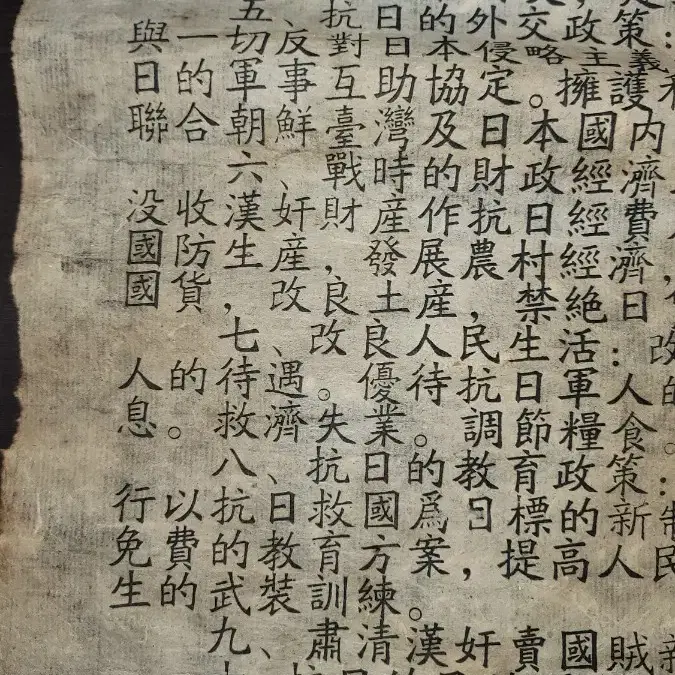 五、抗日的外交政策：
與一切反對日本侵略主義
日的軍事互助協定。擁護和
聯合朝鮮臺灣及日本國内
六、戰時的財政經濟
没收漢奸財產作抗日經費
國防生產，發展農村經濟
國貨，改良土產，禁絶日
七、改良人民生活：改
人的待遇。優待抗日軍人的
息。救濟失業，調節糧食。
八、抗日的教育政策：
行以抗日救國爲目標的新制
免費的教育方案，提高人民
生的武裝訓練。
九、肅清漢奸賣國賊新